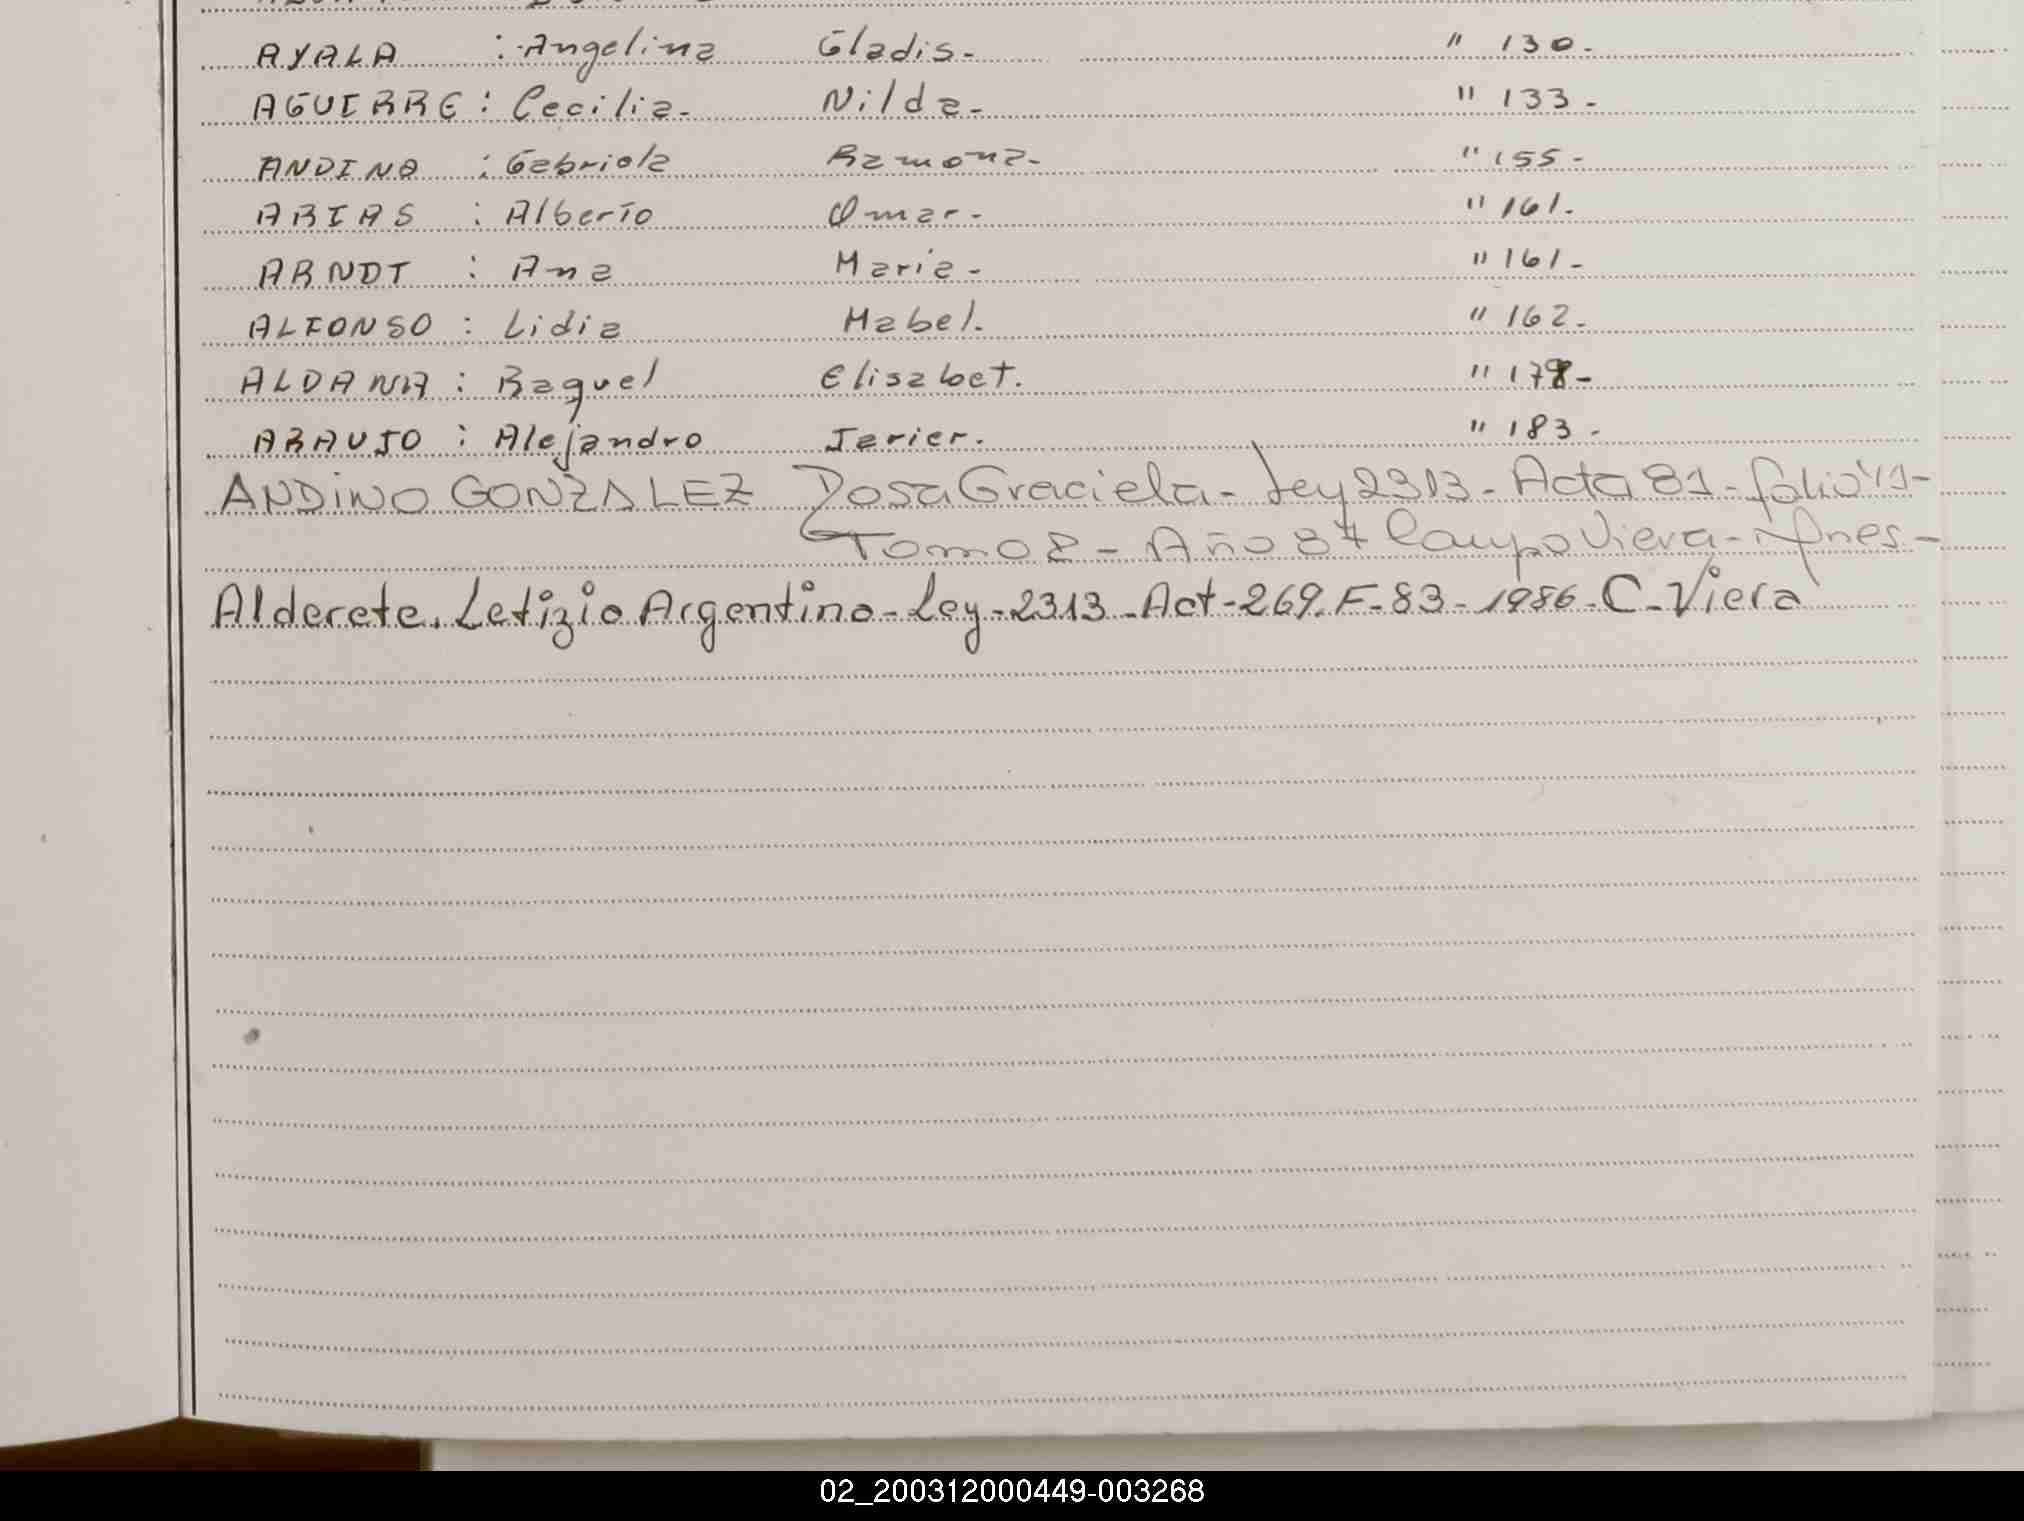 AYALA : Angelina Gladis- " 130-
AGUIRRE : Cecilia- Nilda- " 133-
ANDINO : Gabriela Ramona- " 155-
ARIAS : Alberto Omar- " 161-
ARNDT : Ana Maria- " 161-
ALFONSO : Lidia Mabel. " 162-
ALDANA : Raquel Elisabet. " 178-
ARAUJO : Alejandro Javier. " 183-
ANDINO GONZALEZ Rosa Graciela- Ley 2313- Acta 81- folio
Tomo 2- Año 87 Campo Viera-
Alderete. Letizio Argentino- Ley-2313-Act-269. F-83-1986-C-Viera
02_200312000449-003268